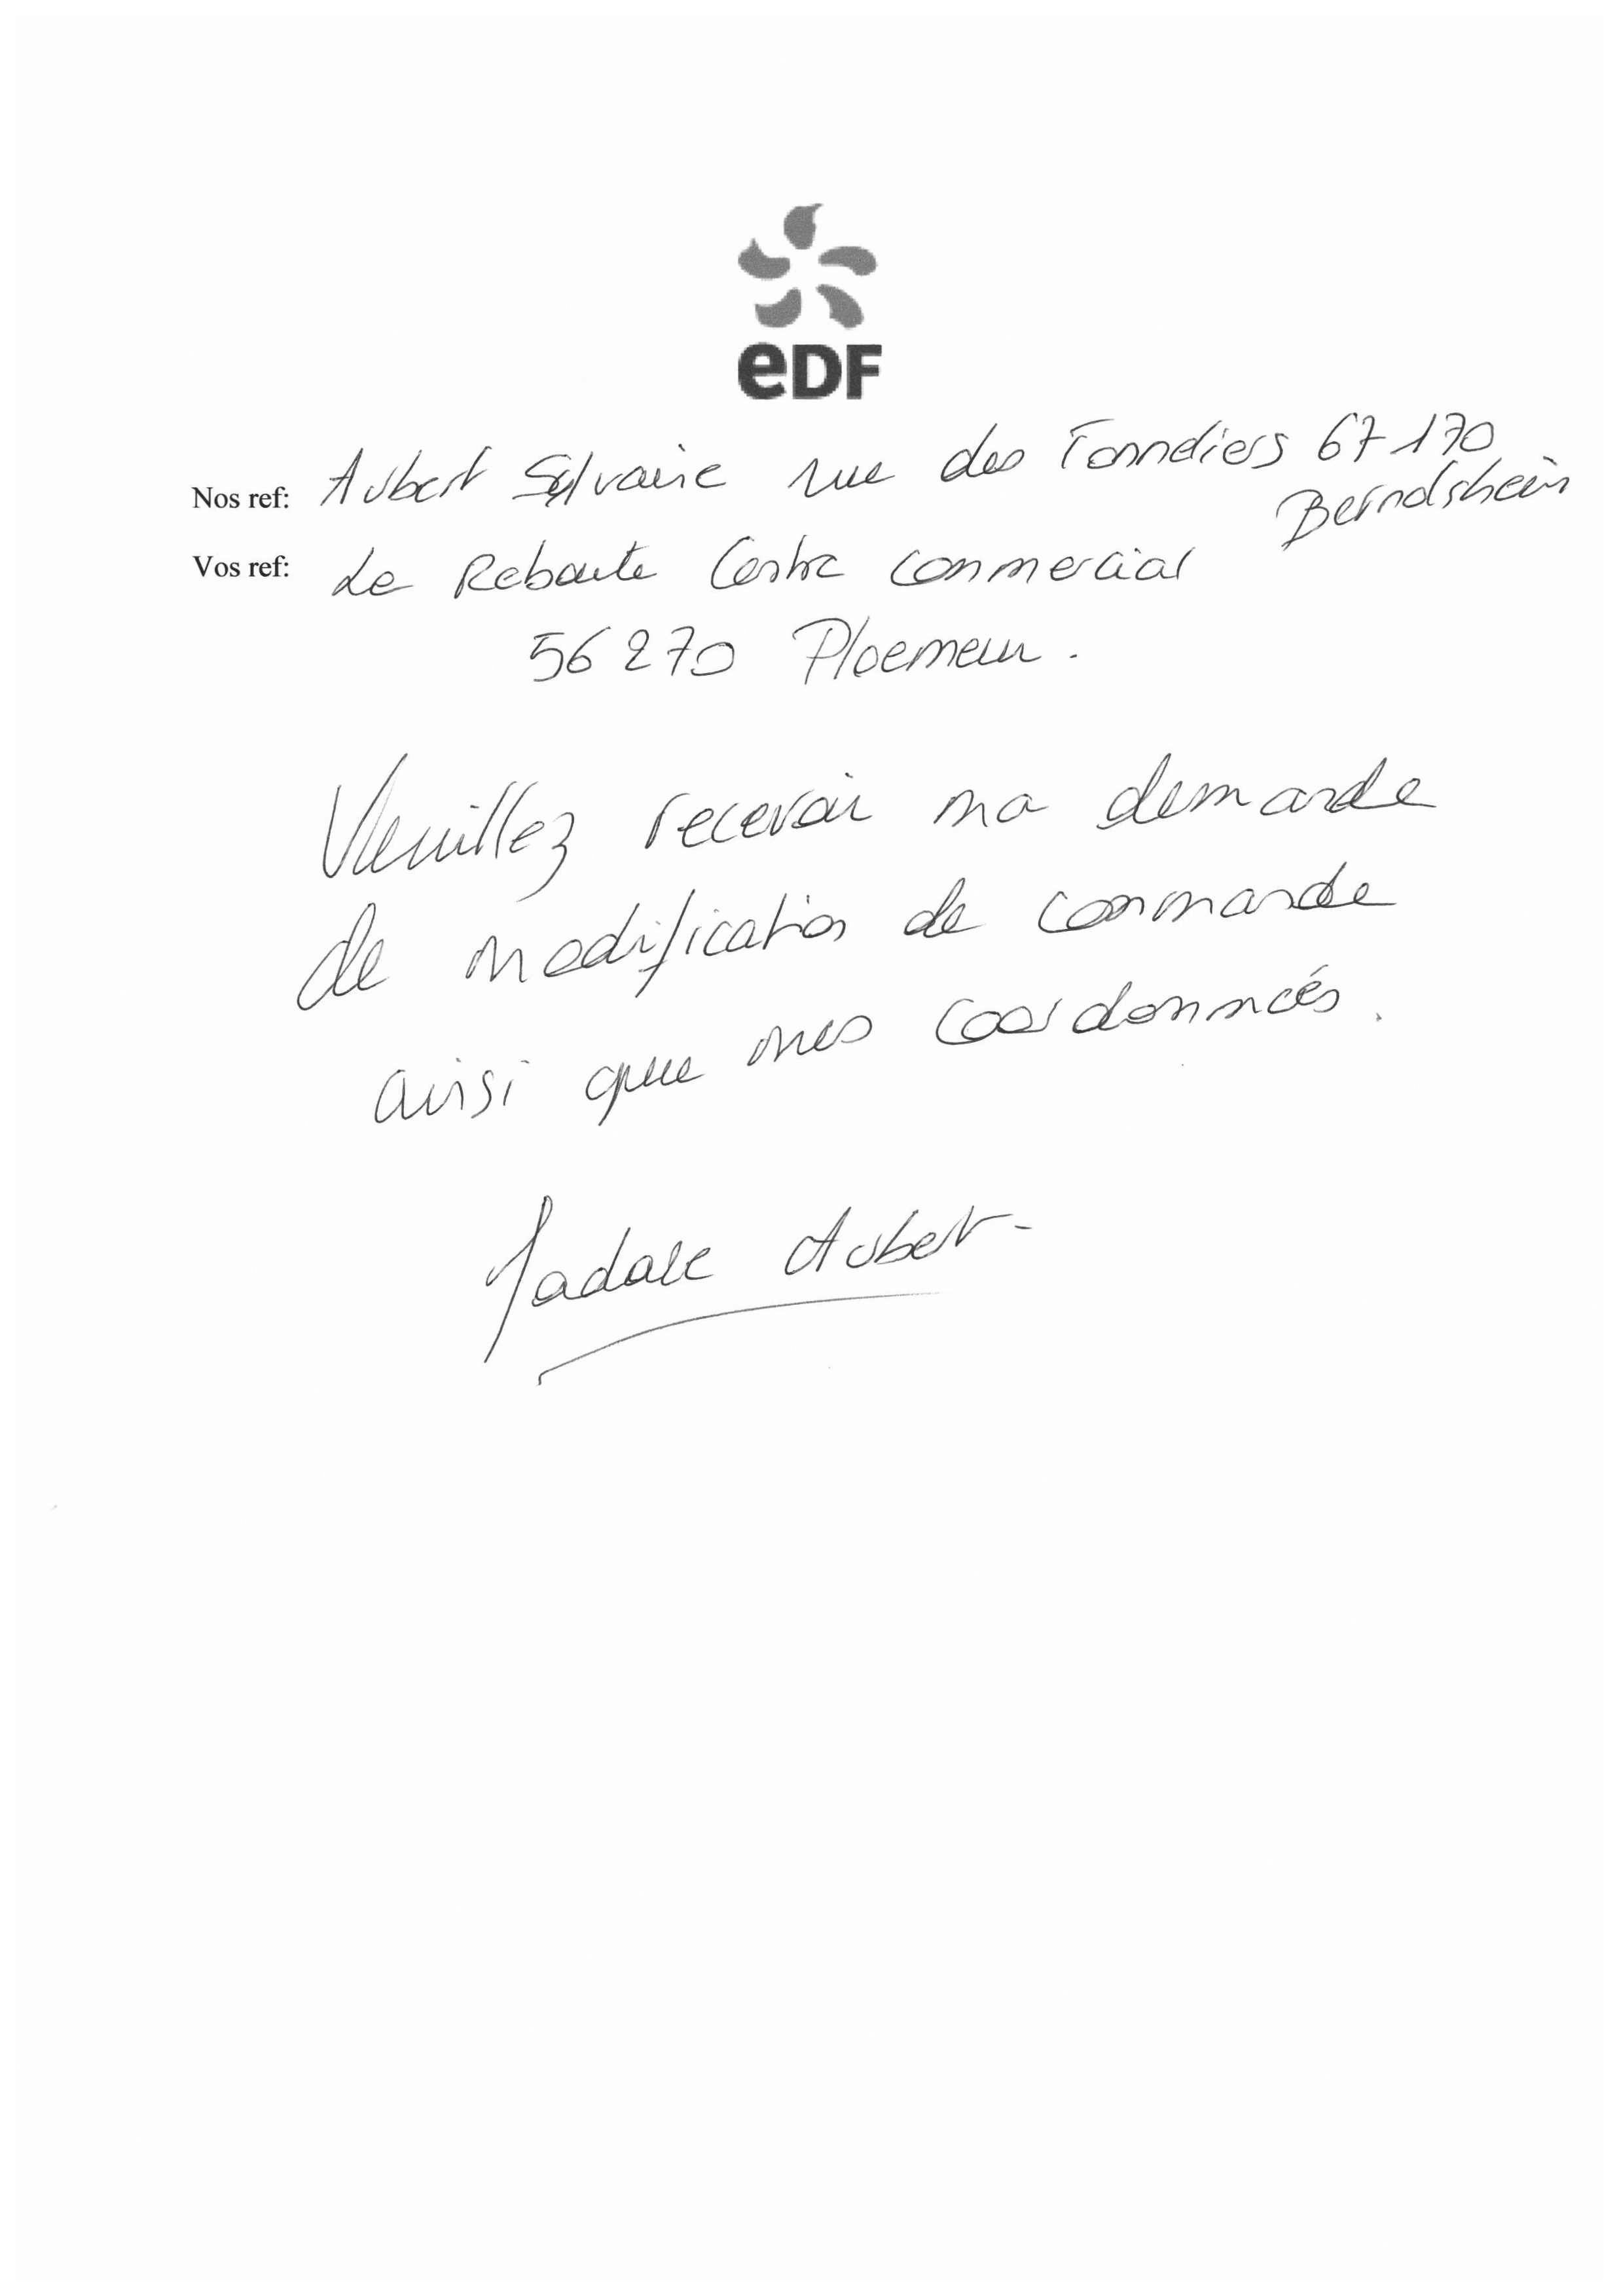 eDF
Nos ref: Aubert Sylvaine rue des Tonndiers 67170
Berndsheim
Vos ref: Le Reboute Centre commercial
56270 Ploemeur.
Veuillez recevoir ma demande
de modification de commande
ainsi que mes coordonnées.
Aubert